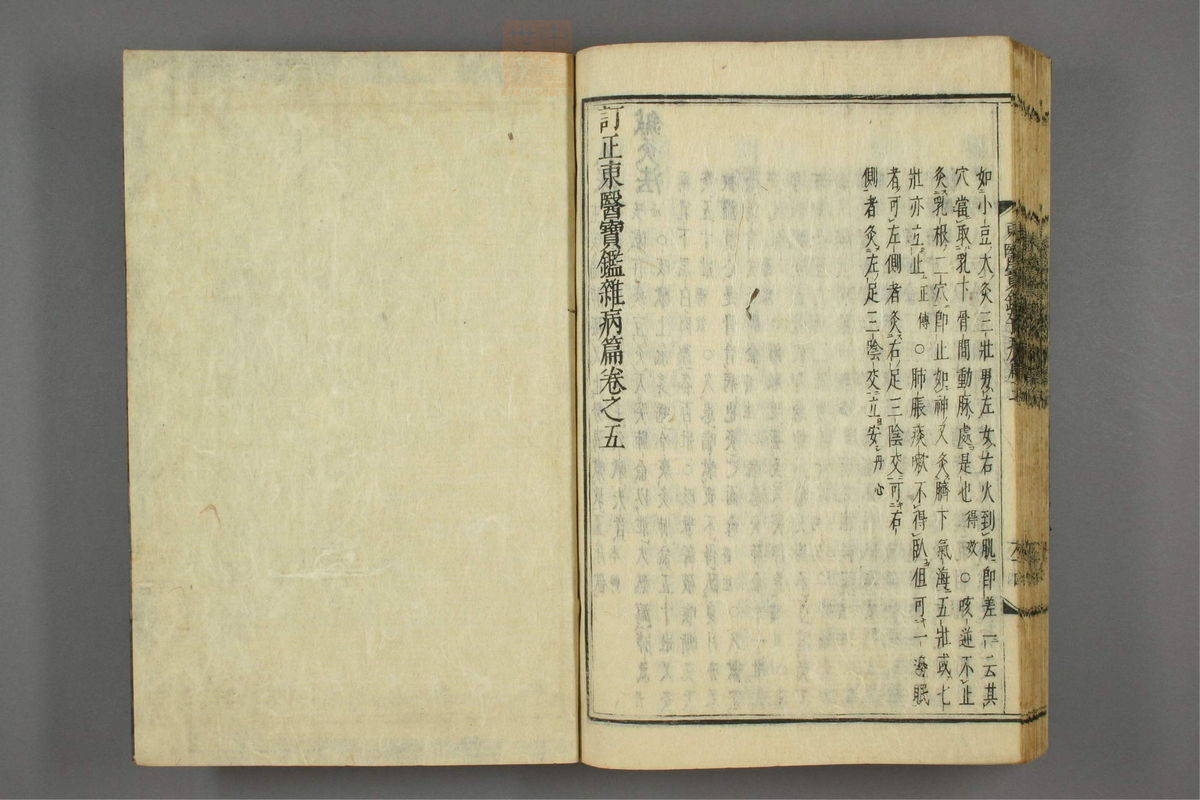 如小豆大灸三壯男左女右火到肌即差一云其
穴當取乳下骨間動脉處是也得效○咳逆不止
灸乳根二穴即止如神又灸臍下氣海五壯或七
壯亦立止正傳○肺脹痰嗽不得臥但可一邊眠
者可左側者灸右足三陰交可右
側者灸左足三陰交立安丹心
訂正東醫寶鑑雜病篇卷之五